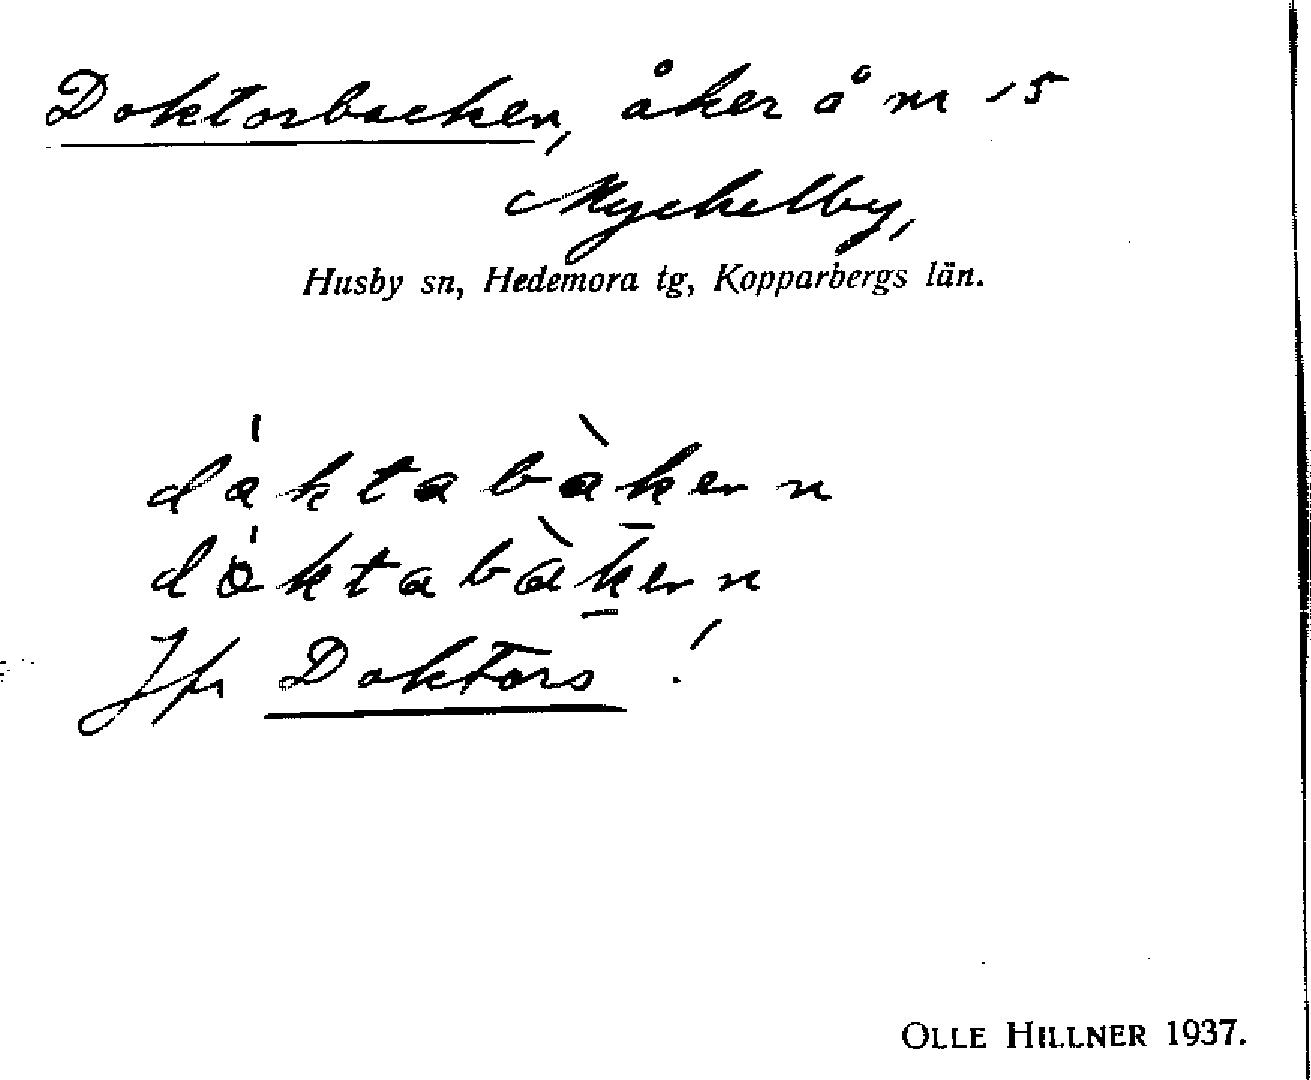 Doktorbacken, åker å nr 15
Myckelby,
Husby sn, Hedemora tg, Kopparbergs län.
dáktabàkern
dóktabàkern
Jfr Doktors !
OLLE HILLNER 1937.